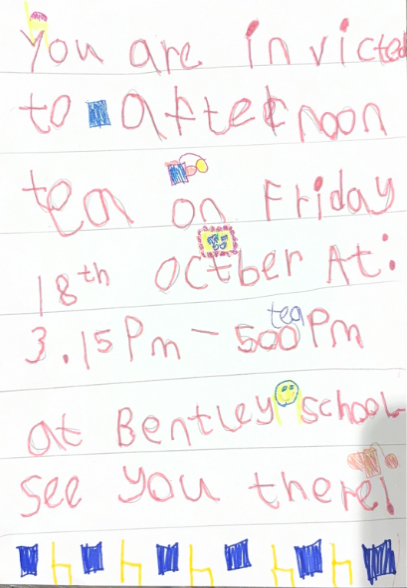 You are invicted
to afternoon
tea on Friday
18th Octber At:
tea
3.15Pm - 500Pm
at Bentley school
see you there!